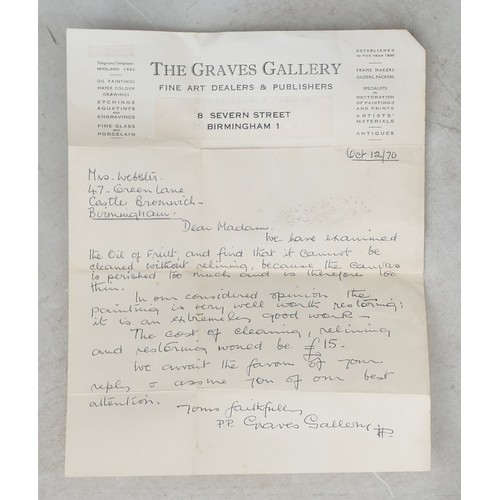 Telegrams/Telephone
MIDLAND 1892
OIL PAINTINGS
WATER COLOUR
DRAWINGS
ETCHINGS
AQUATINTS
and
ENGRAVINGS
FINE GLASS
and
PORCELAIN
THE GRAVES GALLERY
FINE ART DEALERS & PUBLISHERS
8 SEVERN STREET
BIRMINGHAM 1
ESTABLISHED
IN THE YEAR
FRAME MAKERS
GILDERS, PACKERS
SPECIALISTS
in
RESTORATION
OF PAINTINGS
AND PRINTS
ARTISTS'
MATERIALS
ANTIQUES
Oct 12/70
Mrs. Webster.
47- Green Lane
Castle Bromwich-
Birmingham.
Dear Madam.
We have examined
the Oil of Fruit, and find that it cannot be
cleaned without relining, because the canvas
is perished too much and is therefore too
thin.
In our considered opinion the
painting is very well worth restoring;
it is an extremely good work -
The cost of cleaning, relining
and restoring would be £15-
We await the favour of your
reply & assure you of our best
attention.
Yours faithfully
P.P. Graves Gallery